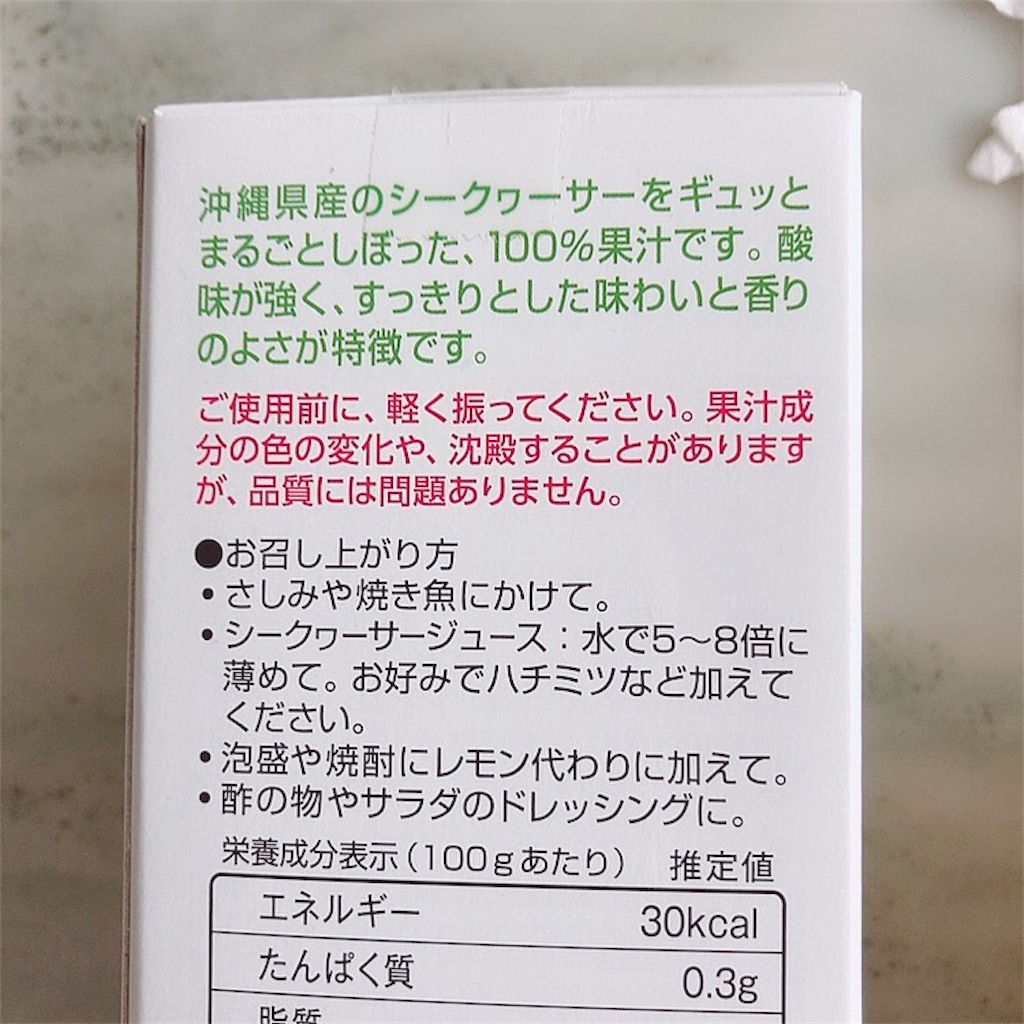 沖縄県産のシークヮーサーをギュッと
まるごとしぼった、100%果汁です。酸
味が強く、すっきりとした味わいと香り
のよさが特徴です。
ご使用前に、軽く振ってください。果汁成
分の色の変化や、沈殿することがあります
が、品質には問題ありません。
●お召し上がり方
・さしみや焼き魚にかけて。
・シークヮーサージュース：水で5〜8倍に
薄めて。お好みでハチミツなど加えて
ください。
・泡盛や焼酎にレモン代わりに加えて。
・酢の物やサラダのドレッシングに。
栄養成分表示（100gあたり） 推定値
エネルギー 30kcal
たんぱく質 0.3g
脂質